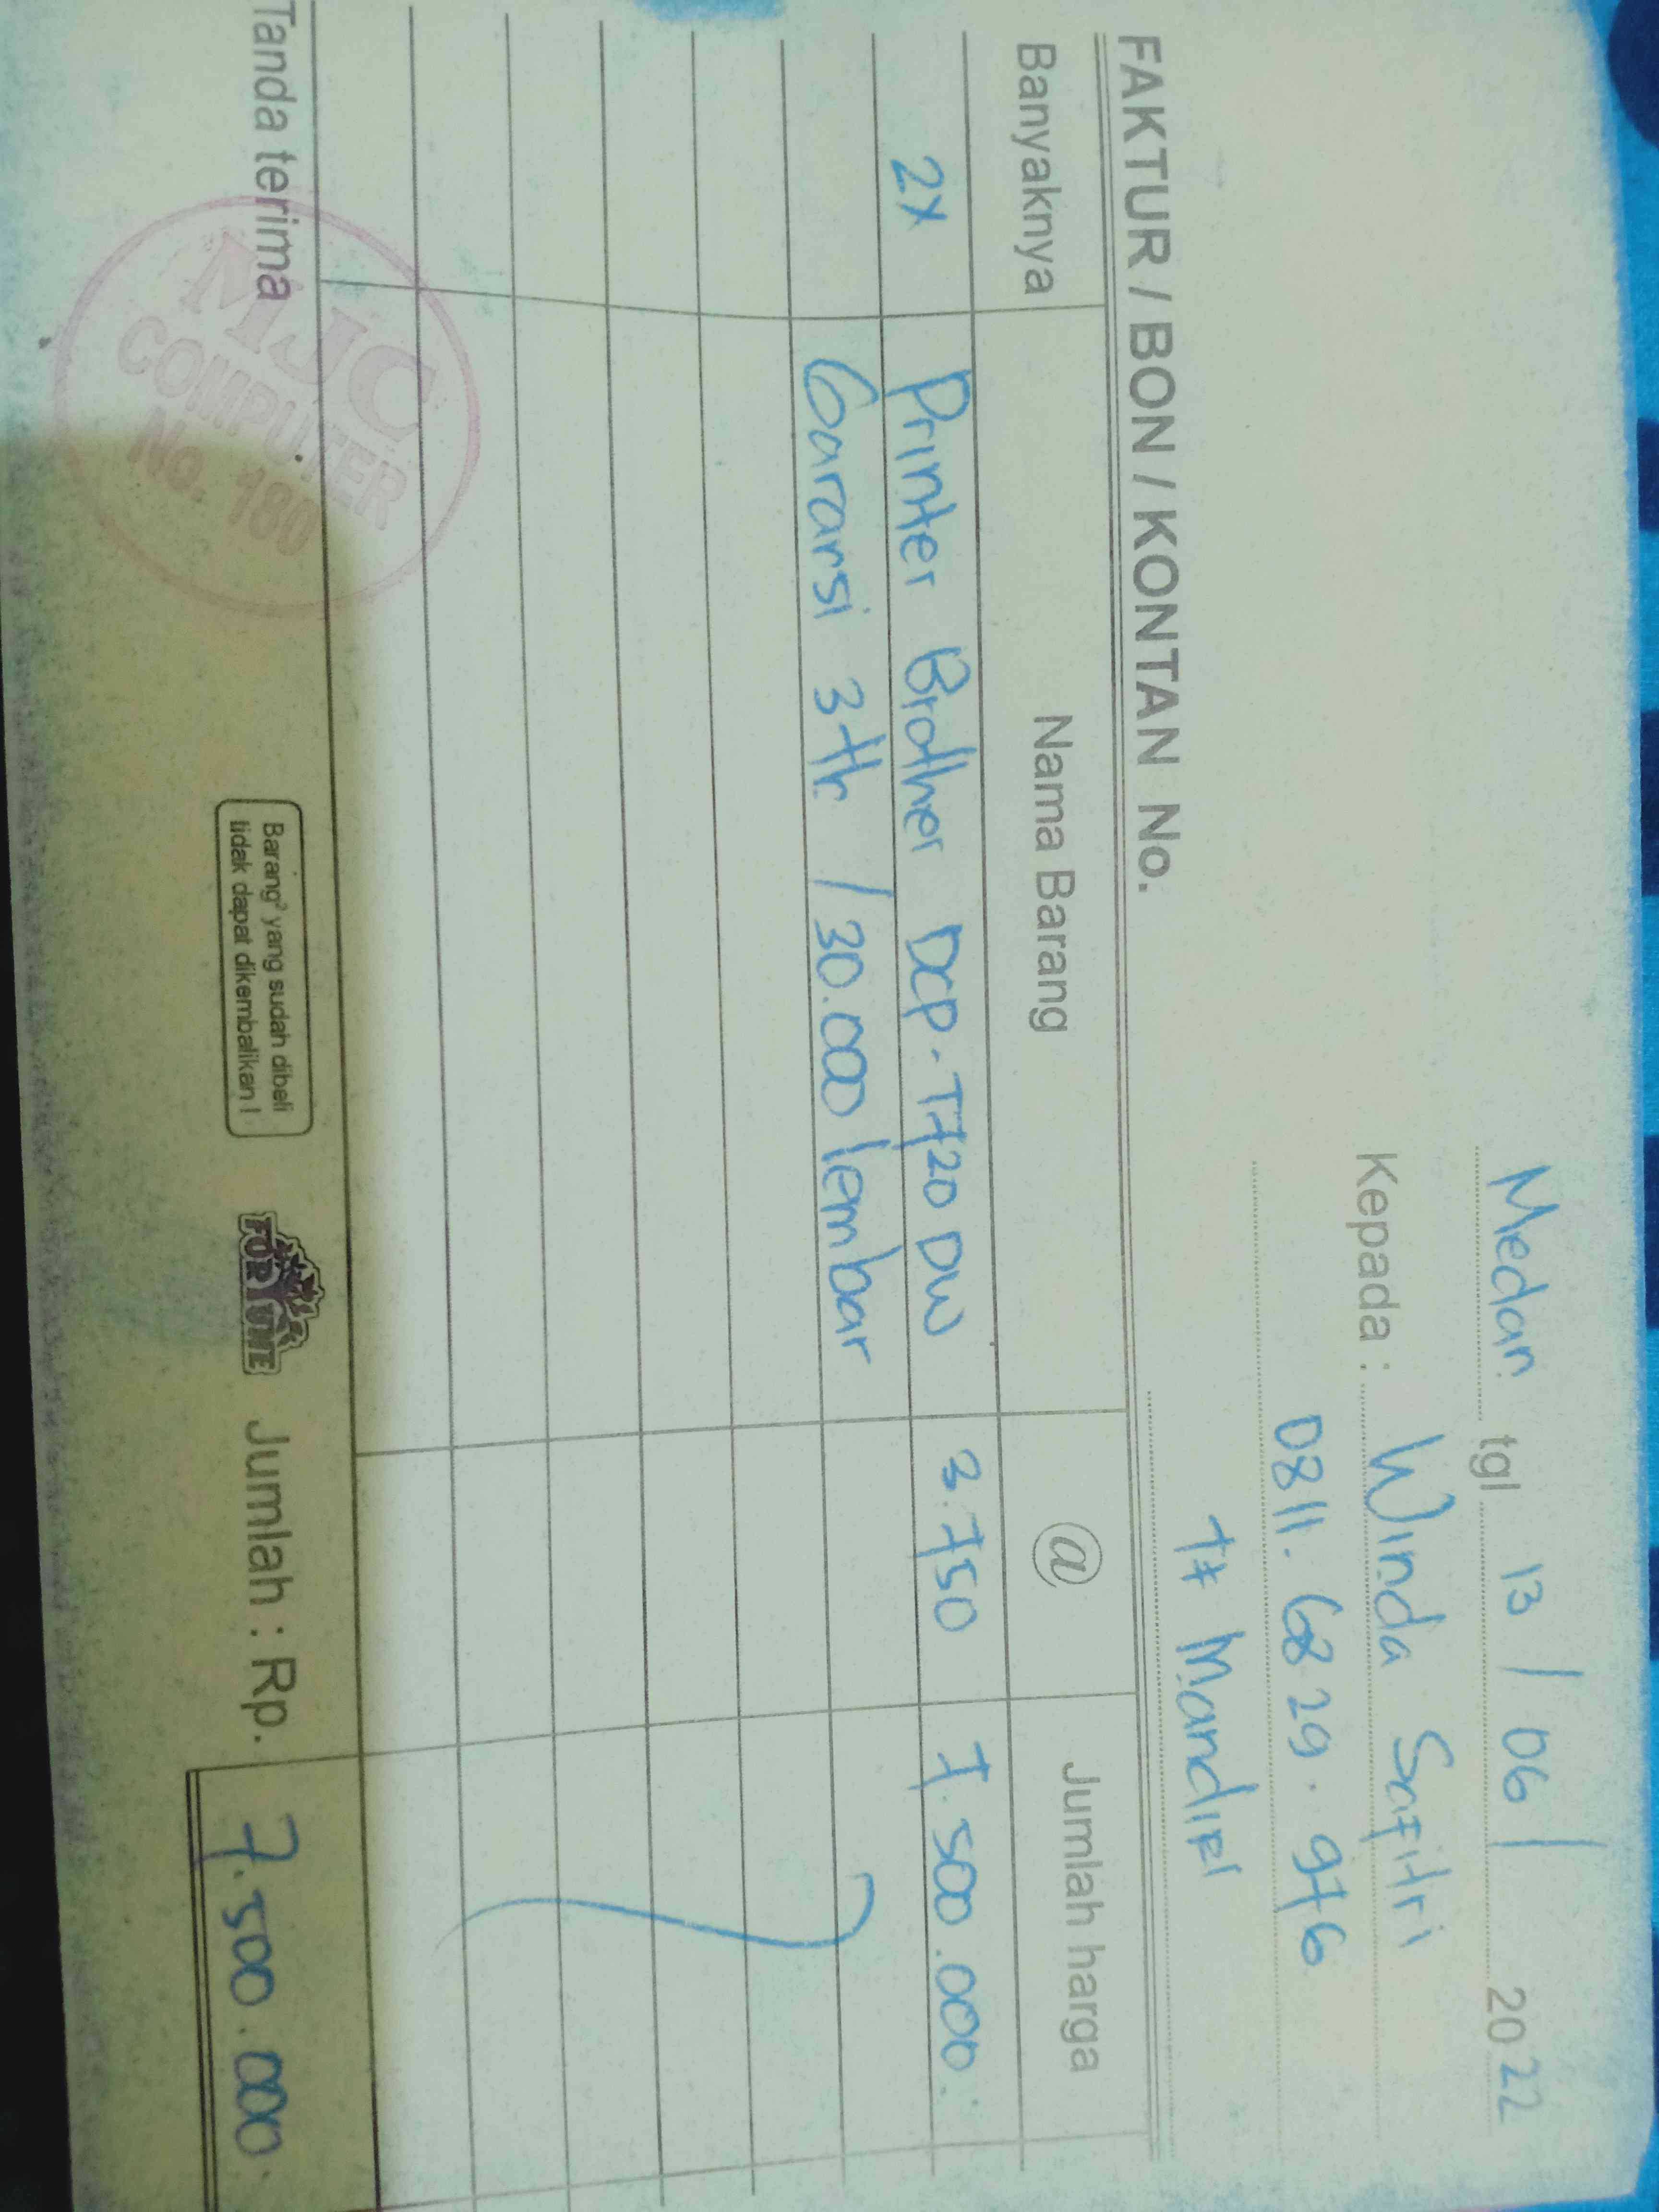 Medan tgl 13 / 06 / 2022
Kepada : Winda Safitri
0811. 68 29. 976
Mandiri
FAKTUR / BON / KONTAN No.
Banyaknya Nama Barang @ Jumlah harga
2x Printer Brother DCP-T720 DW 3.750 7.500.000
Garansi 3th / 30.000 lembar
Tanda terima
MJC
COMPUTER
No. 180
Barang² yang sudah dibeli
tidak dapat dikembalikan !
FORTUNE
Jumlah : Rp. 7.500.000